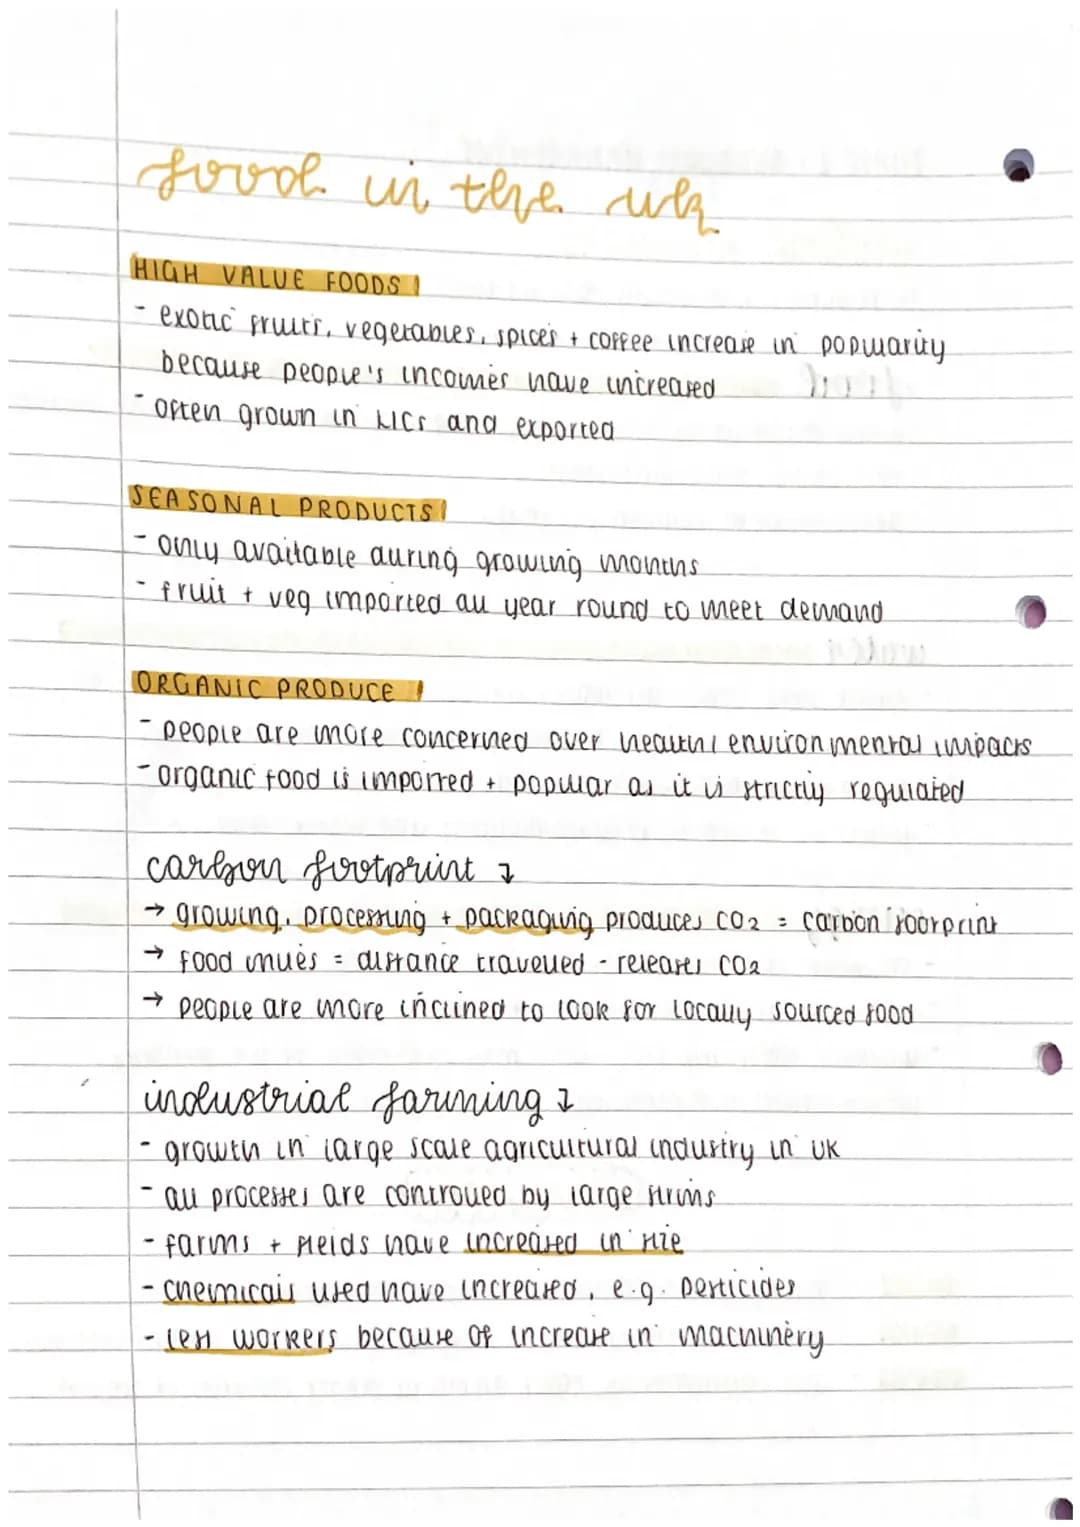 food in the uk
HIGH VALUE FOODS
- exotic fruits, vegetables, spices + coffee increase in popularity
because people's incomes have increased
- often grown in LICs and exported
SEASONAL PRODUCTS
- only available during growing months
- fruit + veg imported all year round to meet demand
ORGANIC PRODUCE
- people are more concerned over health / environmental impacts
- organic food is imported + popular as it is strictly regulated
carbon footprint ↓
→ growing, processing + packaging produces CO2 = carbon footprint
→ food miles = distance travelled - releases CO2
→ people are more inclined to look for locally sourced food
industrial farming ↓
- growth in large scale agricultural industry in UK
- all processes are controlled by large firms
- farms + fields have increased in size
- chemicals used have increased, e.g. pesticides
- less workers because of increase in machinery